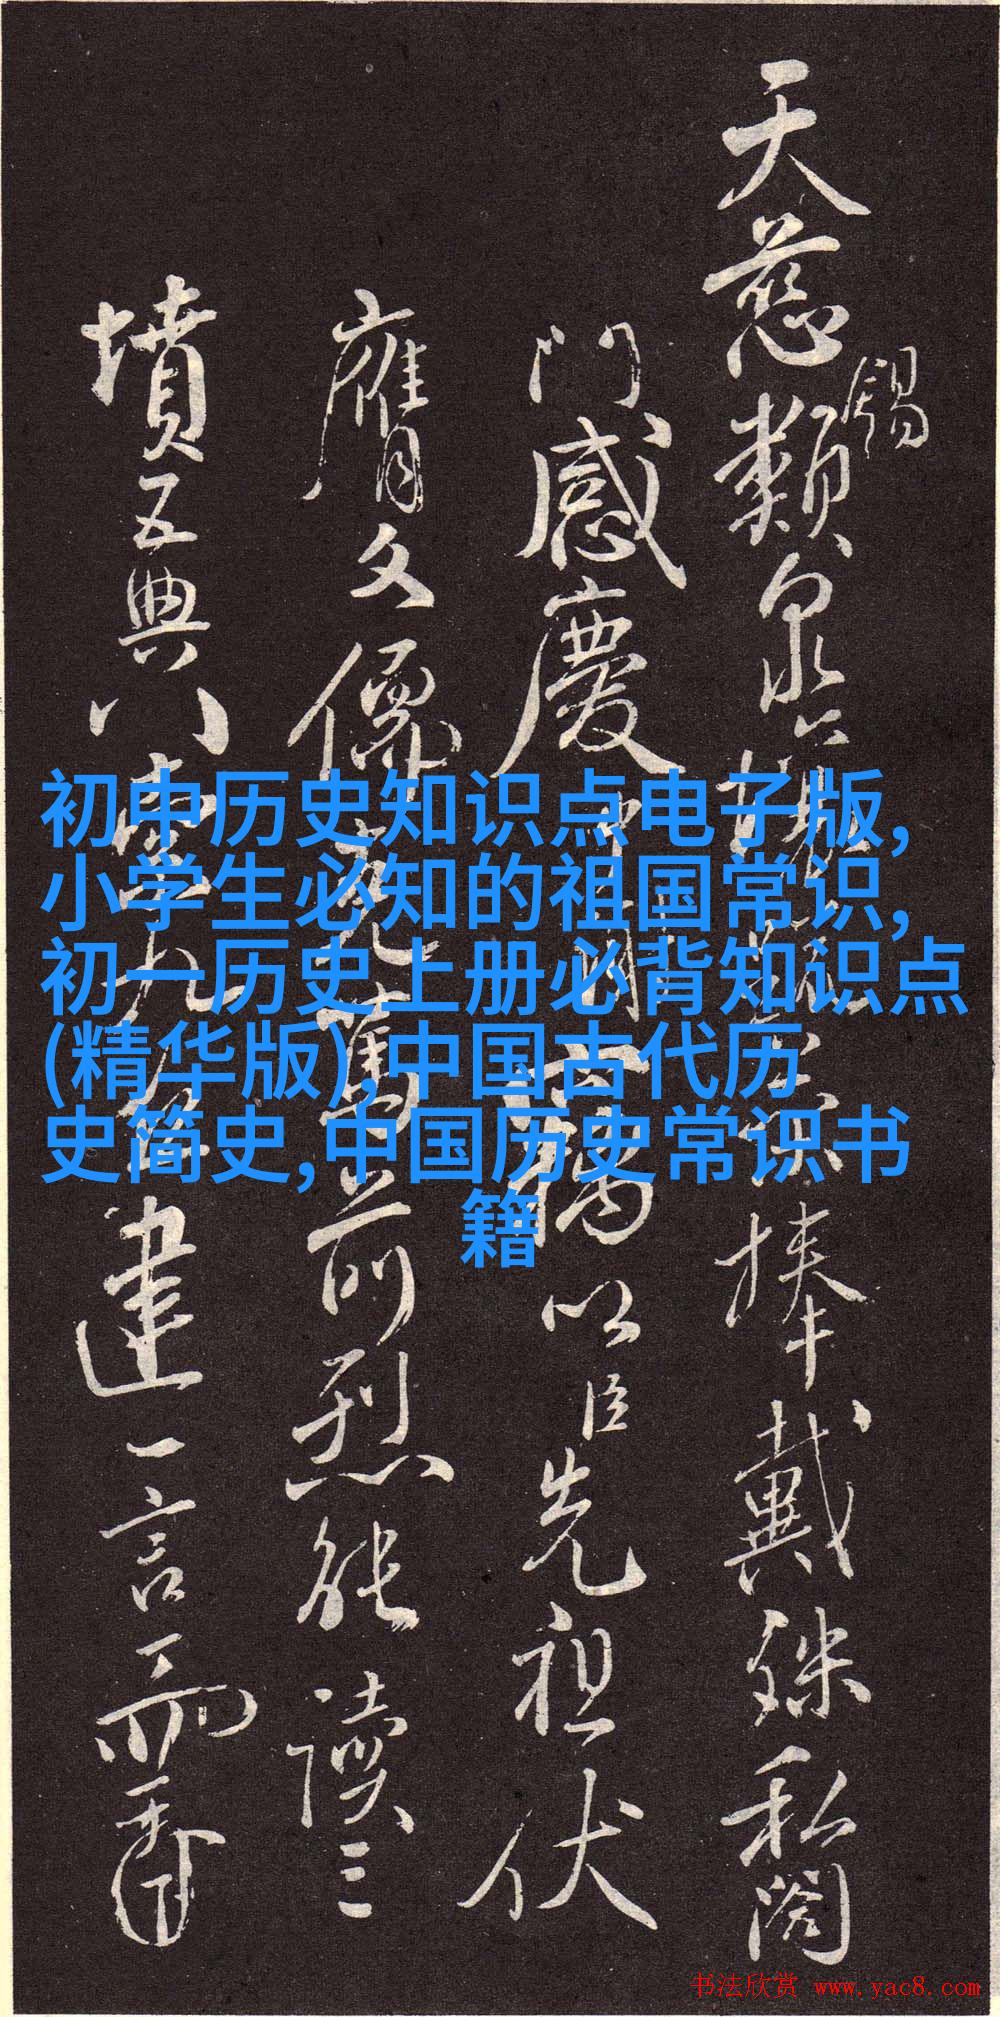 天慈锡類泉
捧戴殊私闔
門感慶
以臣先祖伏
膺文儒
舊
前烈能讀三
墳五典八
九
建一言
初中历史知识点电子版,
小学生必知的祖国常识,
初一历史上册必背知识点
(精华版),中国古代历
史简史,中国历史常识书
籍
书法欣赏 www.yac8.com